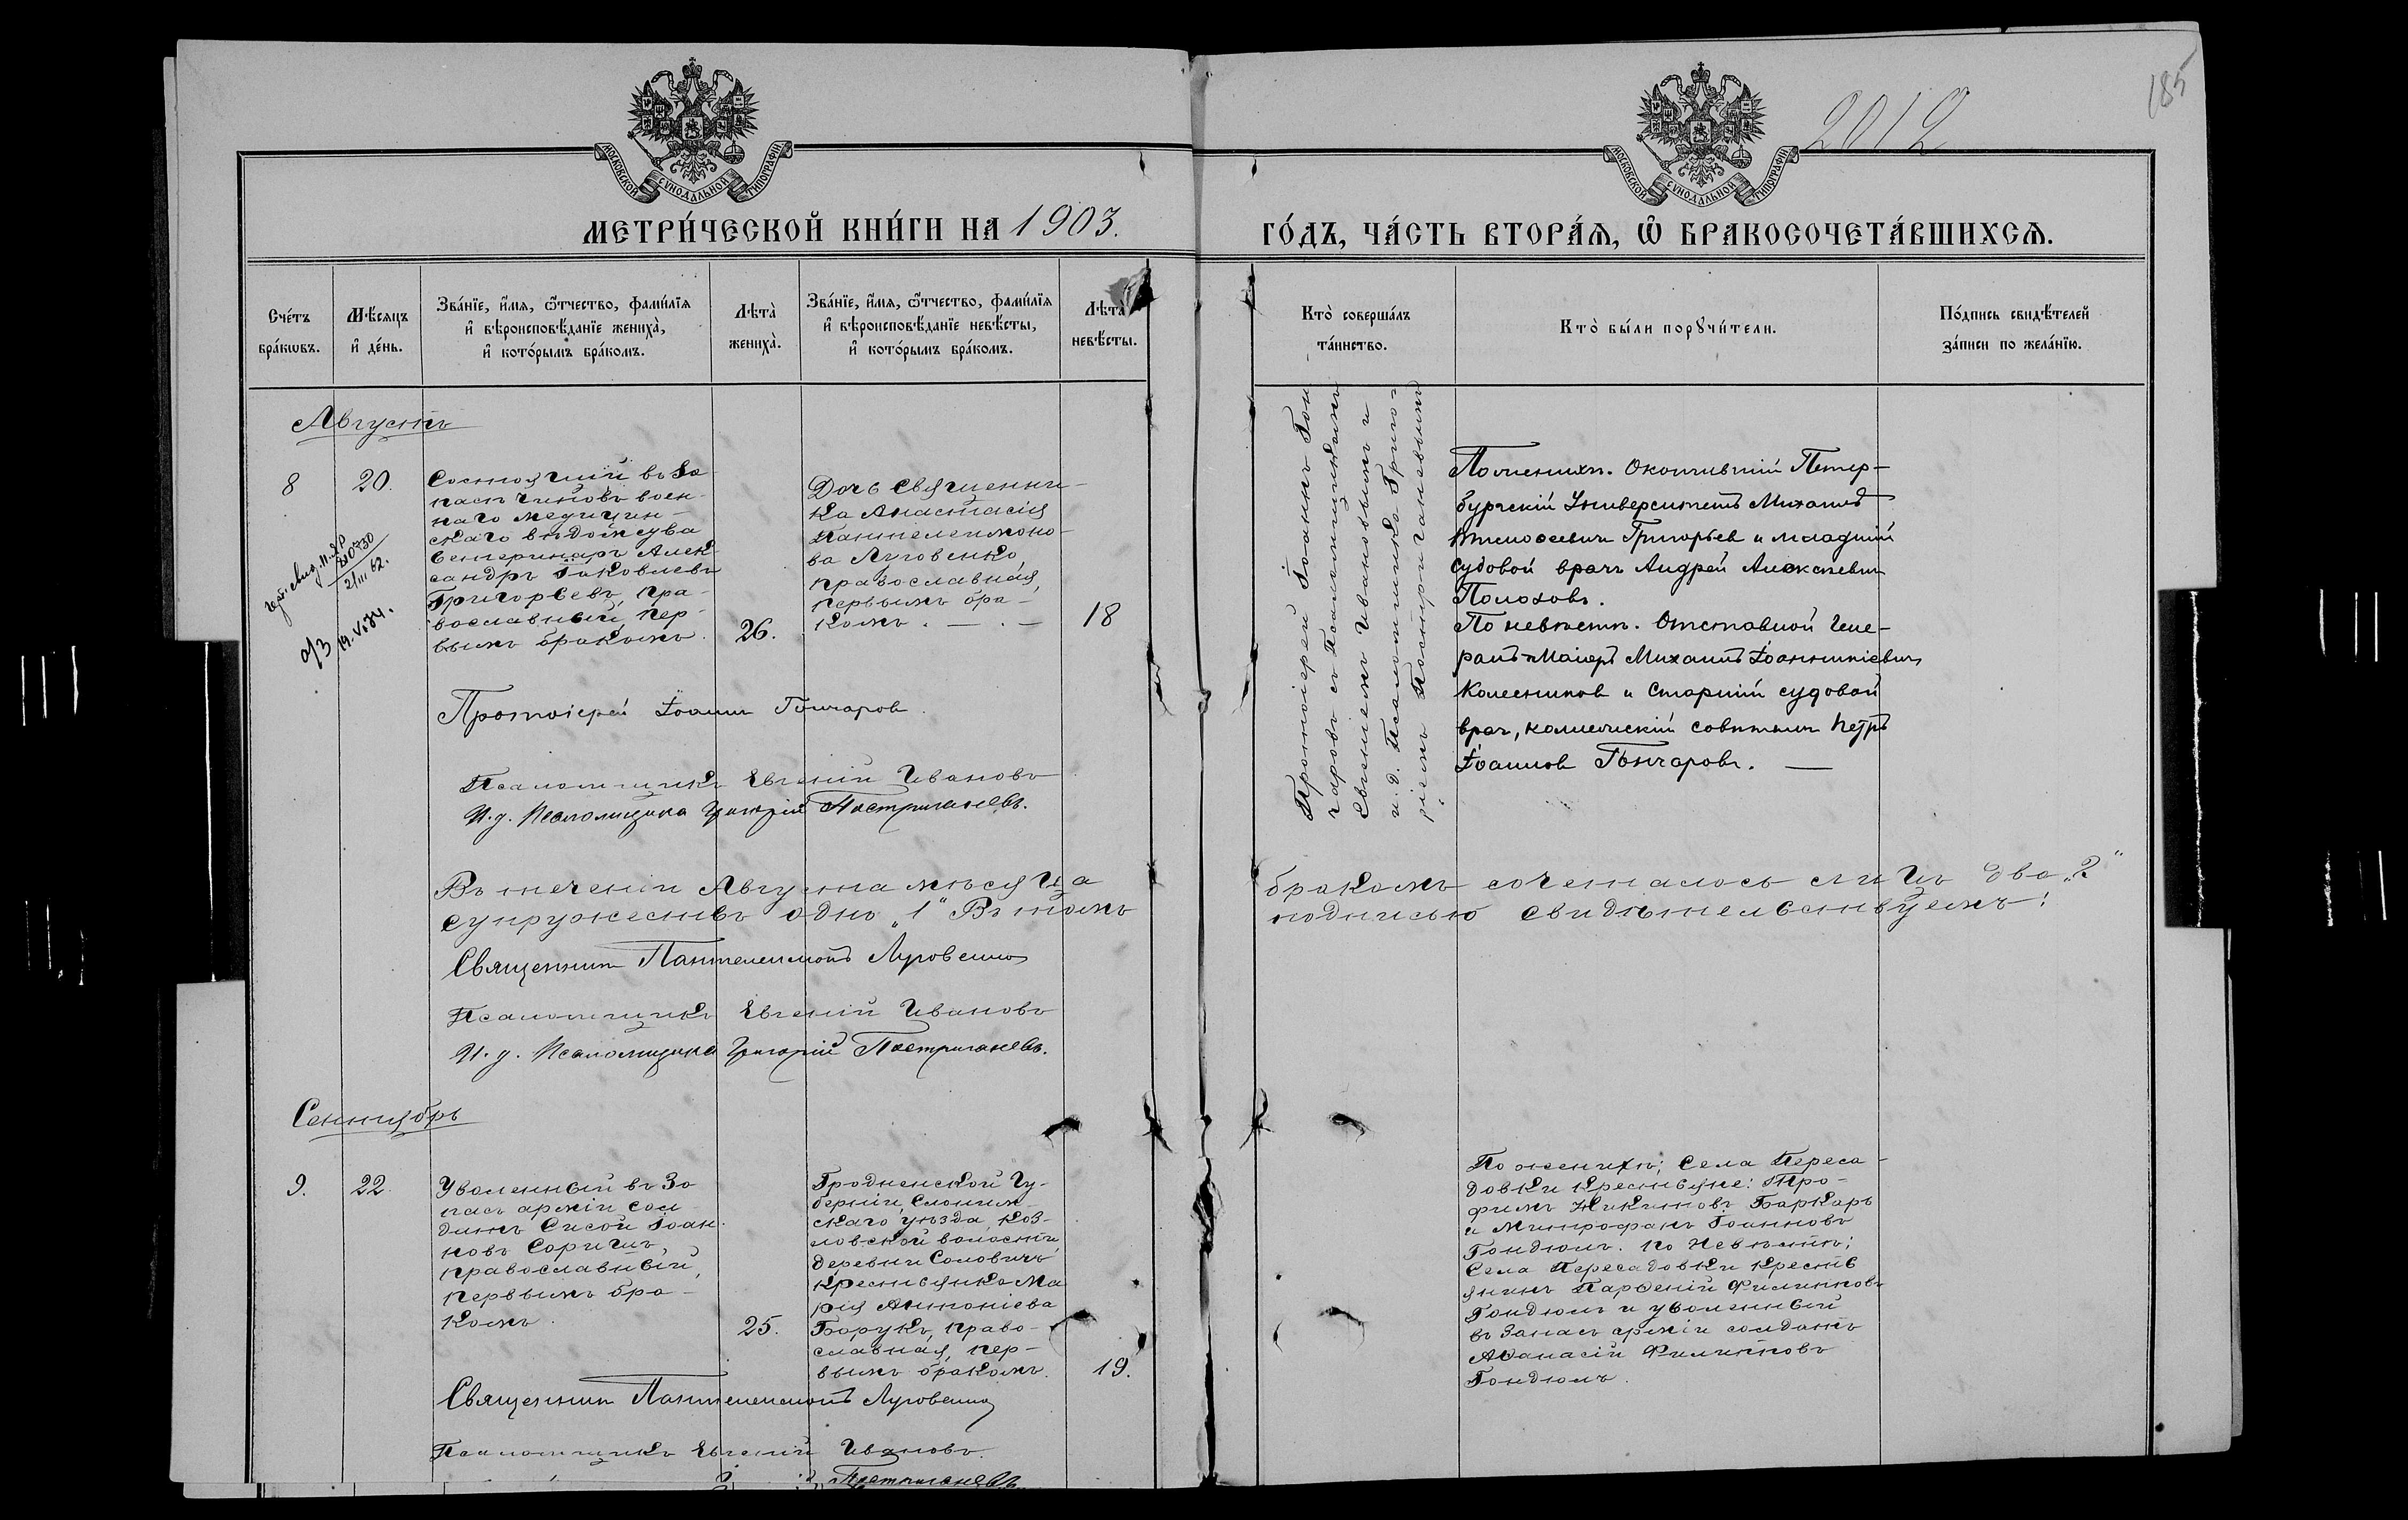 185
2012
МОСКОВСКОЙ СУНОДАЛЬНОЙ ТИПОГРАФІИ
МОСКОВСКОЙ СУНОДАЛЬНОЙ ТИПОГРАФІИ
МЕТРИ́ЧЕСКОЙ КНИ́ГИ НА 1903.
ГО́ДЪ, ЧА́СТЬ ВТОРА́Ѧ, Ѡ҆ БРАКОСОЧЕТА́ВШИХСѦ.
Сче́тъ
бра́кѡвъ.
Мѣ́сяцъ
и҆ де́нь.
Зва́нїе, и҆́мя, ѻ҆́тчество, фами́лїя
и҆ вѣроисповѣ́данїе жениха̀,
и҆ кото́рымъ бра́комъ.
Лѣта̀
жениха̀.
Зва́нїе, и҆́мя, ѻ҆́тчество, фами́лїя
и҆ вѣроисповѣ́данїе невѣ́сты,
и҆ кото́рымъ бра́комъ.
Лѣта̀
невѣ́сты.
Кто̀ соверша́лъ
та́инство.
Кто̀ бы́ли порꙋчи́тели.
По́дпись свидѣ́телей
за́писи по жела́нїю.
Августъ
8
20.
Состоящій въ За-
пасѣ Чиновъ воен-
наго медицин-
скаго вѣдомства
Ветеринаръ Алек-
сандръ Іаковлевъ
Григорьевъ, пра-
вославный, пер-
вымъ бракомъ.
26.
Дочь Священни-
ка Анастасія
Пантелеимоно-
ва Луговенко,
православная,
первымъ бра-
комъ. — . —
18
2/III 62.
19.V.74.
Протоіерей Іоаннъ Гон-
чаровъ съ Псаломщикомъ
Евгеніемъ Ивановымъ и
и. д. Псаломщика Григо-
ріемъ Постригачевымъ
По женихѣ. Окончившій Петер-
бургскій Университетъ Михаилъ
Григорьев и младшій
судовой врачъ Андрей Алексѣевич
Полоховъ.
По невѣстѣ. Отставной Гене-
ралъ-Маіоръ Михаилъ Іоанникіевич
Колесников и Старшій судовой
врач, коллежскій совѣтник Петръ
Іоаннов Гончаровъ. —
Протоіерей Іоаннъ Гончаров.
Псаломщикъ Евгеній Ивановъ
И. д. Псаломщика Григорій Постригачевъ.
Въ теченіи Августа мѣсяца
супружествъ одно „1“ Въ томъ
бракомъ сочеталось лицъ два „2“
подписью свидѣтельствуемъ:
Священник Пантелеимонъ Луговенко
Псаломщикъ Евгеній Ивановъ
И. д. Псаломщика Григорій Постригачевъ.
Сентябрь
9.
22.
Уволенный въ За-
пасъ арміи сол-
датъ Сисой Іоан-
новъ Соричъ,
православный,
первымъ бра-
комъ.
25.
Гродненской Гу-
берніи, Слоним-
скаго уѣзда, Коз-
ловской волости,
деревни Соловичъ,
крестьянка Ма-
рія Антоніева
Борукъ, право-
славная, пер-
вымъ бракомъ.
19.
По женихѣ; Села Переса-
довки крестьяне: Тро-
фимъ Никитовъ Баркарь
и Митрофанъ Іоанновъ
Гондюлъ. По Невѣстѣ;
Села Пересадовки кресть-
янинъ Парѳеній Филипповъ
Гондюлъ и уволенный
въ Запасъ арміи солдатъ
Аѳанасій Филипповъ
Гондюлъ.
Священник Пантелеимонъ Луговенко
Псаломщикъ Евгеній Ивановъ.
Постригачевъ